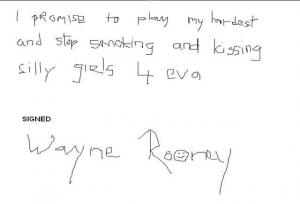 I PROMISE to play my hardest
and stop smoking and kissing
silly girls 4 eva
SIGNED
Wayne Rooney